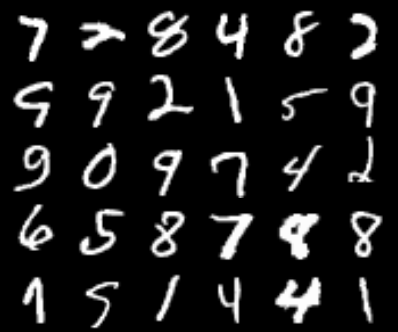 7 2 8 4 8 2
9 9 2 1 5 9
9 0 9 7 4 2
6 5 8 7 8 8
1 5 1 4 4 1